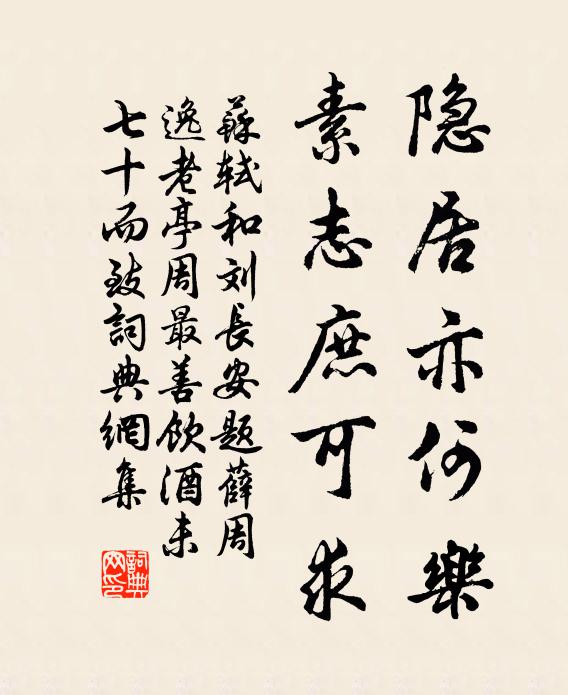 隐居亦何樂
素志庶可求
蘇轼和刘長安题薛周
逸老亭周最善飲酒未
七十而致詞典網集
詞典网印